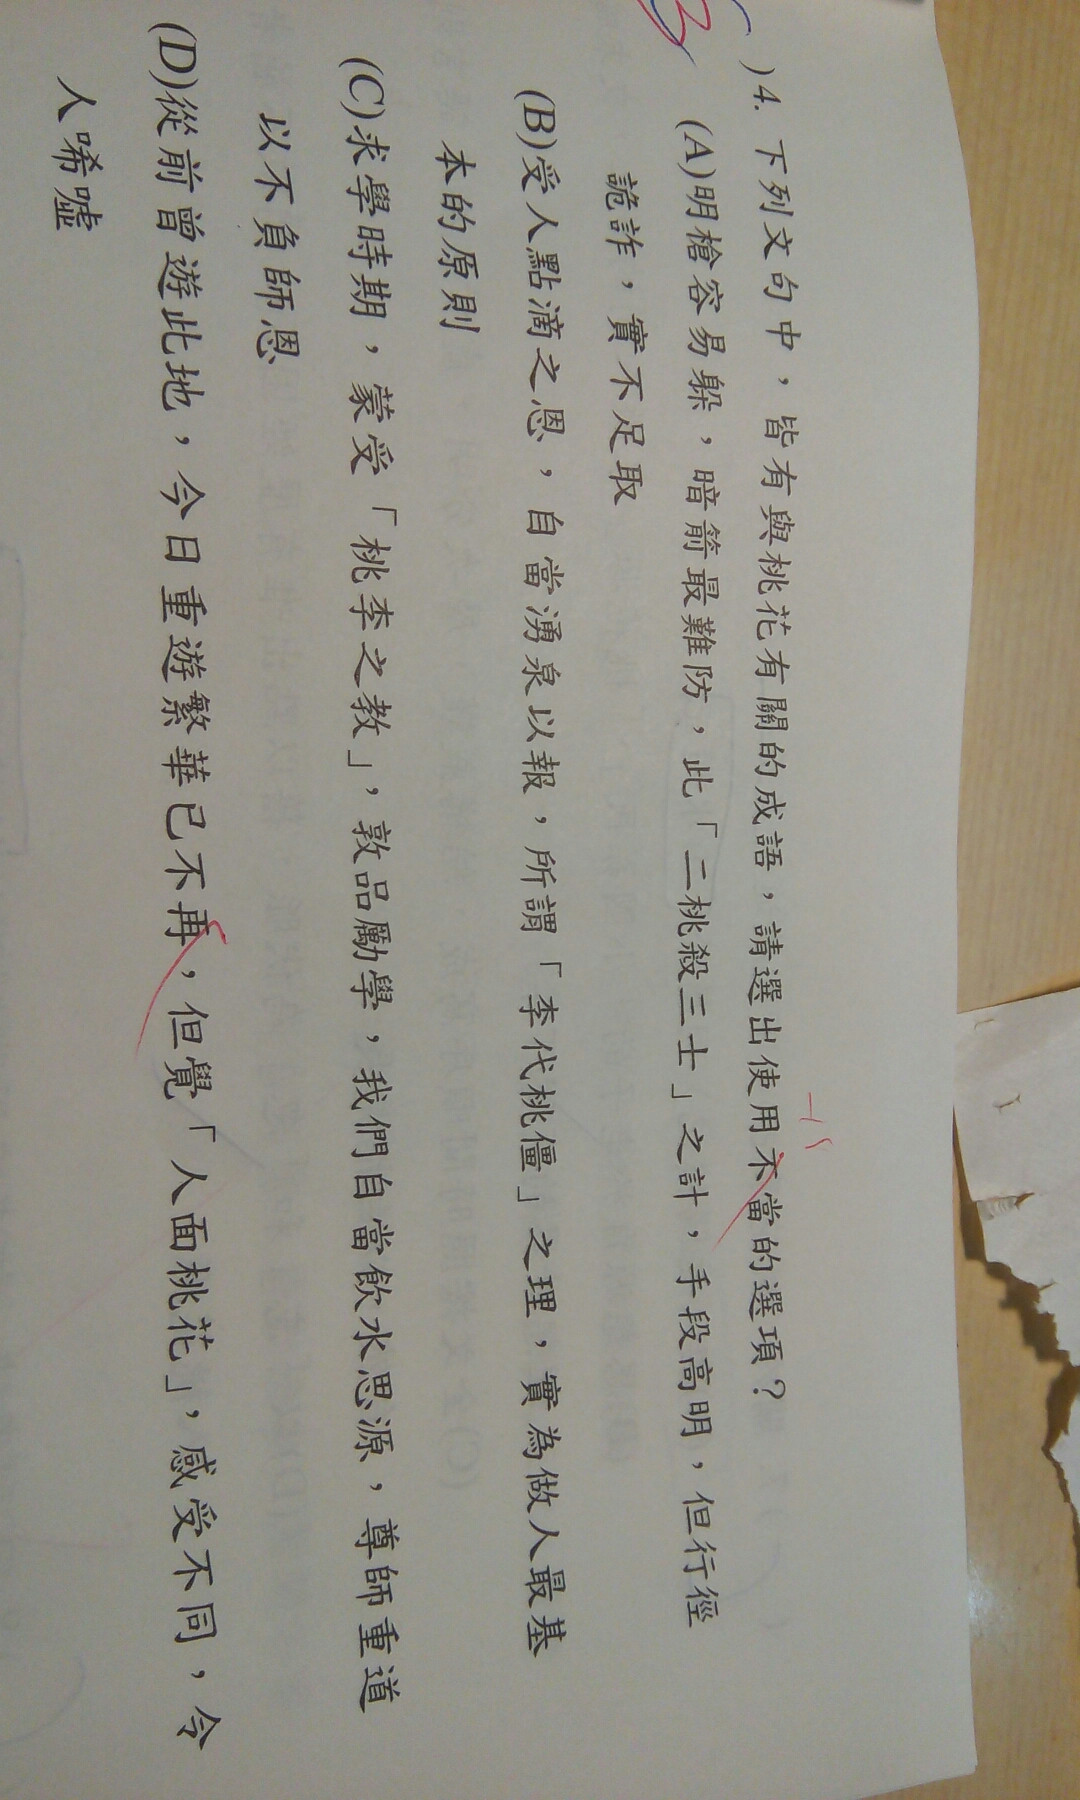 )4. 下列文句中，皆有與桃花有關的成語，請選出使用不當的選項？
(A)明槍容易躲，暗箭最難防，此「二桃殺三士」之計，手段高明，但行徑
詭詐，實不足取
(B)受人點滴之恩，自當湧泉以報，所謂「李代桃僵」之理，實為做人最基
本的原則
(C)求學時期，蒙受「桃李之教」，敦品勵學，我們自當飲水思源，尊師重道
以不負師恩
(D)從前曾遊此地，今日重遊繁華已不再，但覺「人面桃花」，感受不同，令
人唏噓